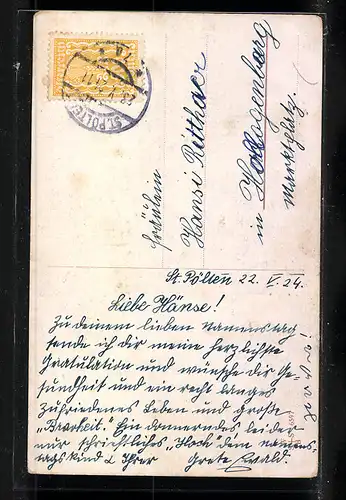 ST. PÖLTEN
Fräulein
Hansi Ritthaer
in Hollogenbarg
Marktplatz.
St. Pölten 22. V. 24.
Liebe Hänse!
Zu deinem lieben Namenstag
sende ich dir meine herzlichste
Gratulation und wünsche dir Ge-
sundheit und ein recht langes
zufriedenes Leben und große
"Bravheit". Ein donnerndes leider
nur schriftliches "Hoch" dem Namens-
tagskind v. Ihrer
Grete Ewald.